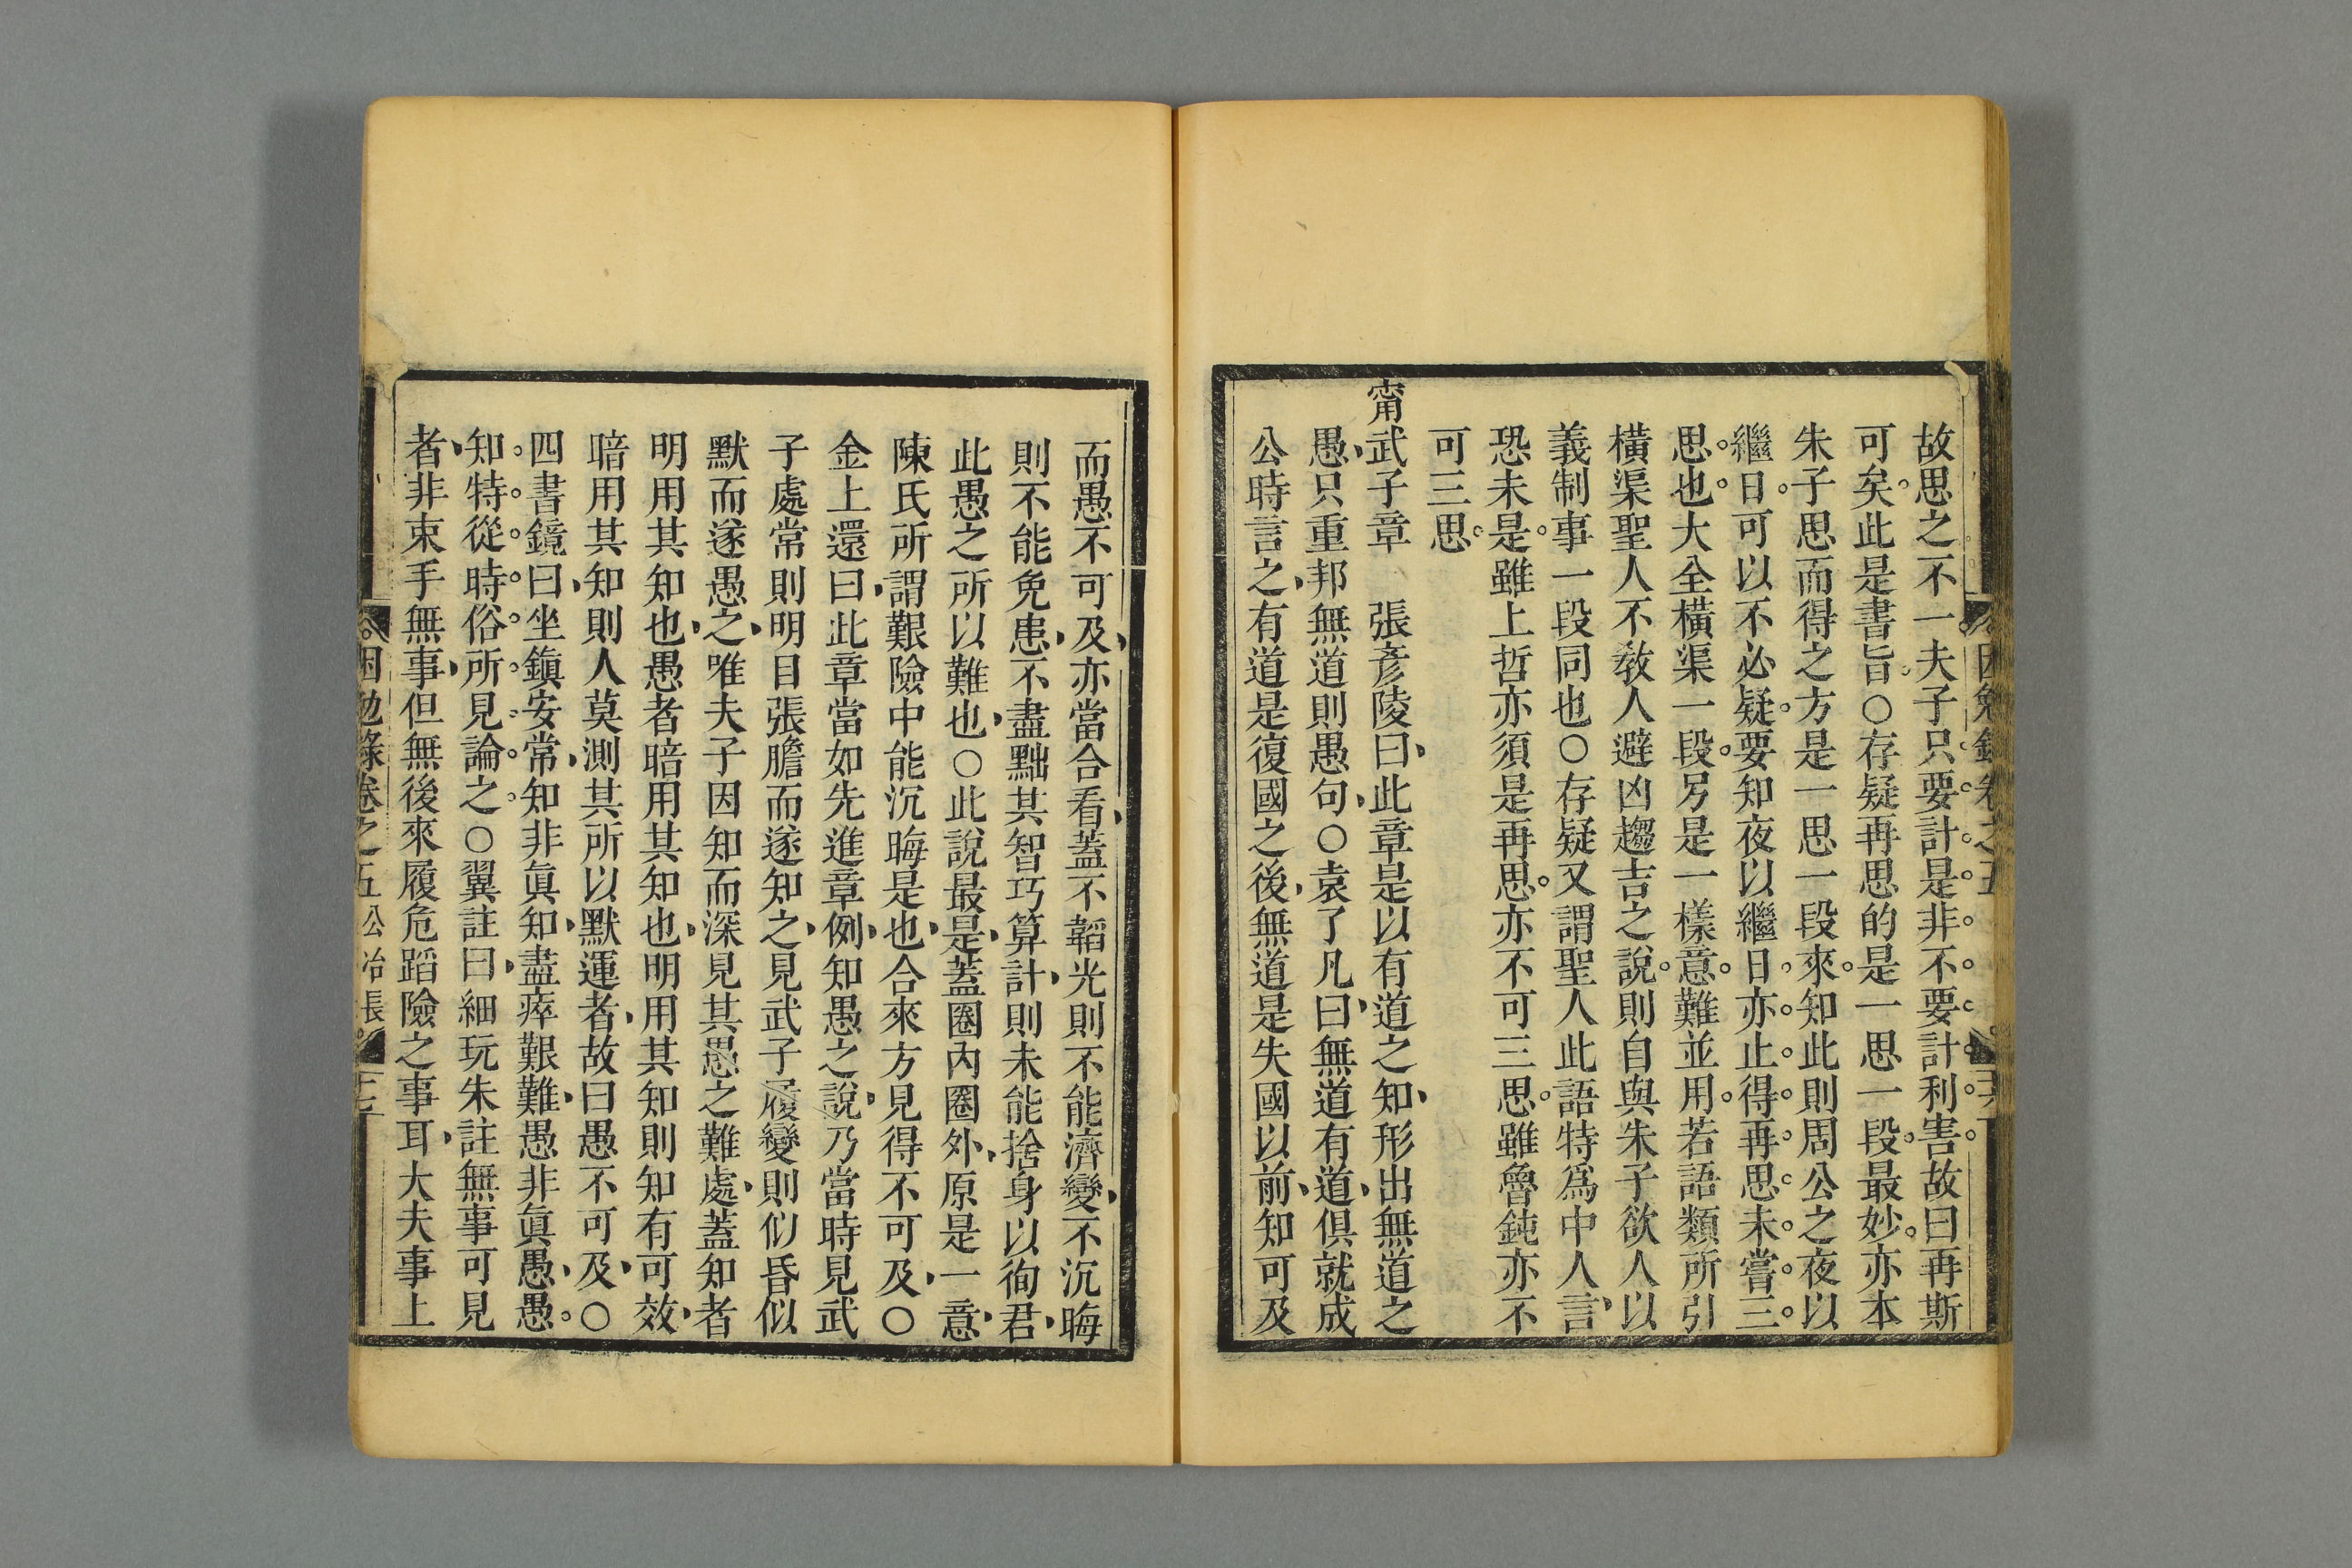 故思之不一夫子只要計是非不要計利害故曰再斯
可矣此是書旨○存疑再思的是一思一段最妙亦本
朱子思而得之方是一思一段來知此則周公之夜以
繼日可以不必疑要知夜以繼日亦止得再思未嘗三
思也大全橫渠一段另是一樣意難並用若語類所引
橫渠聖人不敎人避凶趨吉之說則自與朱子欲人以
義制事一段同也○存疑又謂聖人此語特爲中人言
恐未是雖上哲亦須是再思亦不可三思雖魯鈍亦不
可三思
甯武子章 張彥陵曰此章是以有道之知形出無道之
愚只重邦無道則愚句○袁了凡曰無道有道俱就成
公時言之有道是復國之後無道是失國以前知可及
而愚不可及亦當合看蓋不韜光則不能濟變不沉晦
則不能免患不盡黜其智巧算計則未能捨身以徇君
此愚之所以難也○此說最是蓋圈內圈外原是一意
陳氏所謂艱險中能沉晦是也合來方見得不可及○
金上還曰此章當如先進章例知愚之說乃當時見武
子處常則明目張膽而遂知之見武子履變則似昏似
默而遂愚之唯夫子因知而深見其愚之難處蓋知者
明用其知也愚者暗用其知也明用其知則知有可效
暗用其知則人莫測其所以默運者故曰愚不可及○
四書鏡曰坐鎭安常知非眞知盡瘁艱難愚非眞愚愚
知特從時俗所見論之○翼註曰細玩朱註無事可見
者非束手無事但無後來履危蹈險之事耳大夫事上
困勉錄卷之五 公冶長 十七